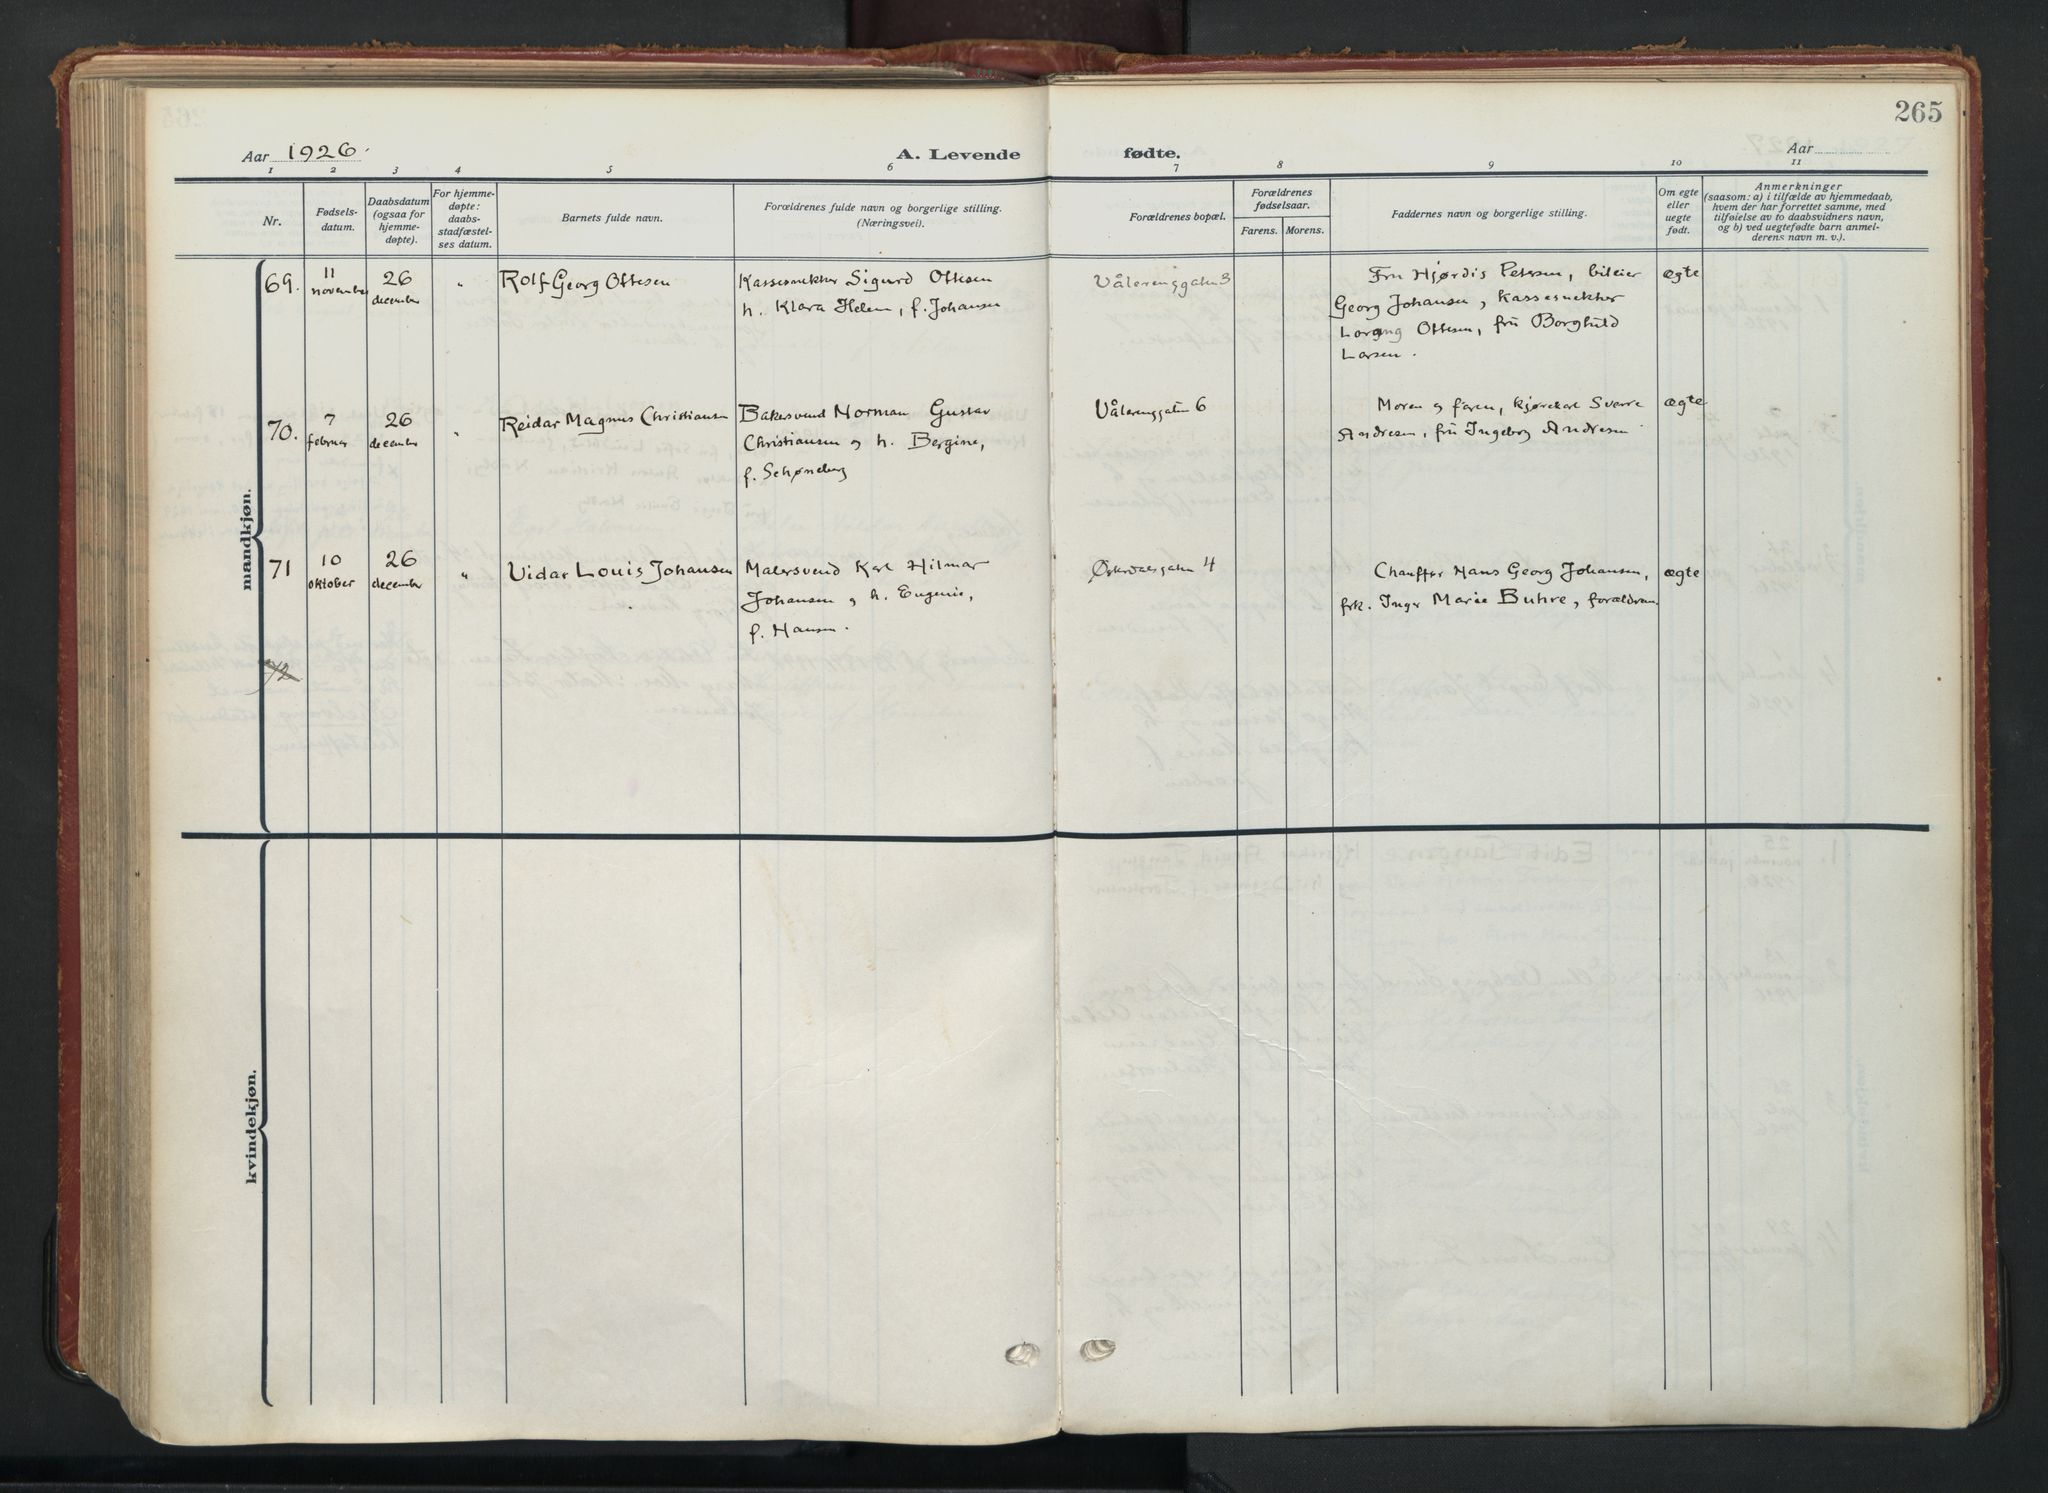 265
Aar 1926.
A. Levende fødte.
Aar
1 2 3 4 5 6 7 8 9 10 11
Nr.
Fødsels-
datum.
Daabsdatum
(ogsaa for
hjemme-
døpte).
For hjemme-
døpte:
daabs-
stadfæstel-
ses datum.
Barnets fulde navn.
Forældrenes fulde navn og borgerlige stilling.
(Næringsvei).
Forældrenes bopæl.
Forældrenes
fødselsaar.
Farens. Morens.
Faddernes navn og borgerlige stilling.
Om egte
eller
uegte
født.
Anmerkninger
(saasom: a) i tilfælde av hjemmedaab,
hvem der har forrettet samme, med
tilføielse av to daabsvidners navn,
og b) ved uegtefødte barn anmel-
derens navn m. v.).
maandkjøn.
69.
11
november
26
december
"
Rolf Georg Ottesen
Kassesnekker Sigurd Ottesen
h. Klara Helene, f. Johansen
Vålerenggaten 3
Fru Hjørdis Petersen, bileier
Georg Johansen, kassesnekker
Ottesen, fru Borghild
Larsen.
ægte
70.
7
februar
26
december
"
Reidar Magnus Christiansen
Bakersvend Norman Gustav
Christiansen og h. Bergine,
f. Schøneberg
Vålerenggaten 6
Moren og faren, kjørekar Sverre
Andresen, fru Ingeborg Andresen
ægte
71
10
oktober
26
december
"
Vidar Louis Johansen
Malersvend Karl Hilmar
Johansen og h. Eugenie,
f. Hansen.
4
Chauffør Hans Georg Johansen,
frk. Inger Marie Buhre, forældrene
ægte
72
kvindekjøn.